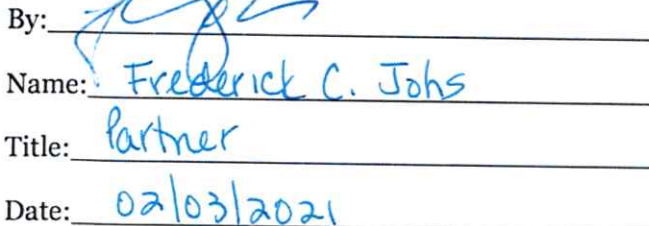 By:
Name: Frederick C. Johs
Title: Partner
Date: 02/03/2021